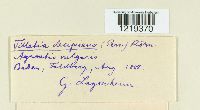 1219370
Tilletia decipiens (Pers.) Körn.
Agrostis vulgaris
Baden, Feldberg,
G. Lagerheim